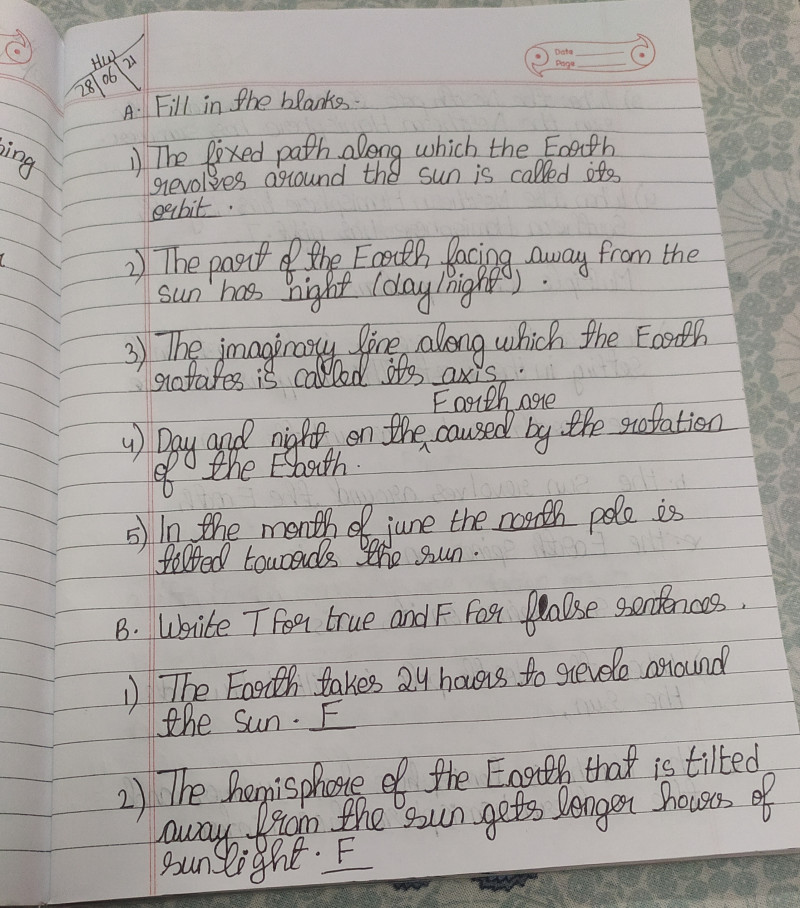 HW
28/06/21
Date
Page
A. Fill in the blanks.
1) The fixed path along which the Earth
revolves around the sun is called its
orbit.
2) The part of the Earth facing away from the
sun has night (day/night).
3) The imaginary line along which the Earth
rotates is called its axis.
Earth are
4) Day and night on the ^ caused by the rotation
of the Earth.
5) In the month of june the north pole is
tilted towards the sun.
B. Write T for true and F for false sentences.
1) The Earth takes 24 hours to revole around
the sun. F
2) The hemisphere of the Earth that is tilted
away from the sun gets longer hours of
sunlight. F
ing